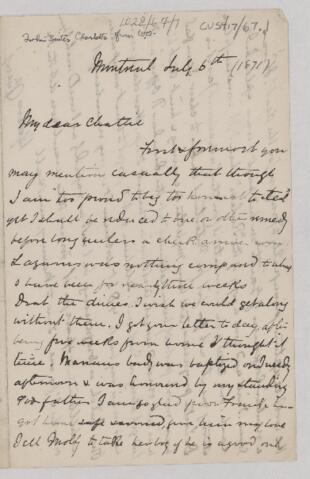 1022/1-4/1
CUS417/67.1
To his sister Charlotte from
Montreal July 6th (1871)
My dear Chattie
First & foremost you
may mention casually that though
I am too proud to beg too honest to steal
yet I shall be reduced to one or other remedy
before long unless a check arrives soon
Lazarus was nothing compared to what
I have been for nearly three weeks
Drat the I wish we could get along
without them. I got your letter to day, after
being five weeks from home I thought it
time. baby was baptized on Tuesday
afternoon & was honoured by my standing
God father I am so glad poor has
got home safe & sound, give him my love
Tell Molly to take her boy if he is a good one